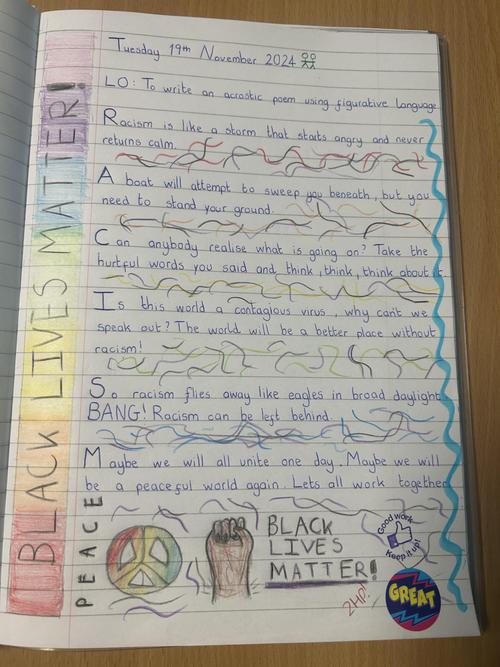 Tuesday 19th November 2024
LO: To write an acrostic poem using figurative language
Racism is like a storm that starts angry and never
returns calm.
A boat will attempt to sweep you beneath, but you
need to stand your ground.
Can anybody realise what is going on? Take the
hurtful words you said and think, think, think about it.
Is this world a contagious virus, why can't we
speak out? The world will be a better place without
racism!
So racism flies away like eagles in broad daylight.
BANG! Racism can be left behind.
Maybe we will all unite one day. Maybe we will
be a peaceful world again. Lets all work together
BLACK LIVES MATTER!
PEACE
BLACK
LIVES
MATTER!
Good work
Keep it up!
2HP!
GREAT